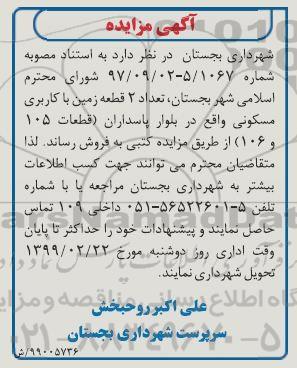 آگهی مزایده
شهرداری بجستان در نظر دارد به استناد مصوبه
شماره ۹۷/۰۹/۰۲-۵/۱۰۶۷ شورای محترم
اسلامی شهر بجستان، تعداد ۲ قطعه زمین با کاربری
مسکونی واقع در بلوار پاسداران (قطعات ۱۰۵
و ۱۰۶) از طریق مزایده کتبی به فروش رساند. لذا
متقاضیان محترم می توانند جهت کسب اطلاعات
بیشتر به شهرداری بجستان مراجعه یا با شماره
تلفن ۵-۰۵۱-۵۶۵۲۲۶۰۱ داخلی ۱۰۹ تماس
حاصل نمایند و پیشنهادات خود را حداکثر تا پایان
وقت اداری روز دوشنبه مورخ ۱۳۹۹/۰۲/۲۲
تحویل شهرداری نمایند.
علی اکبر روحبخش
سرپرست شهرداری بجستان
۹۹۰۰۵۷۳۶/ش